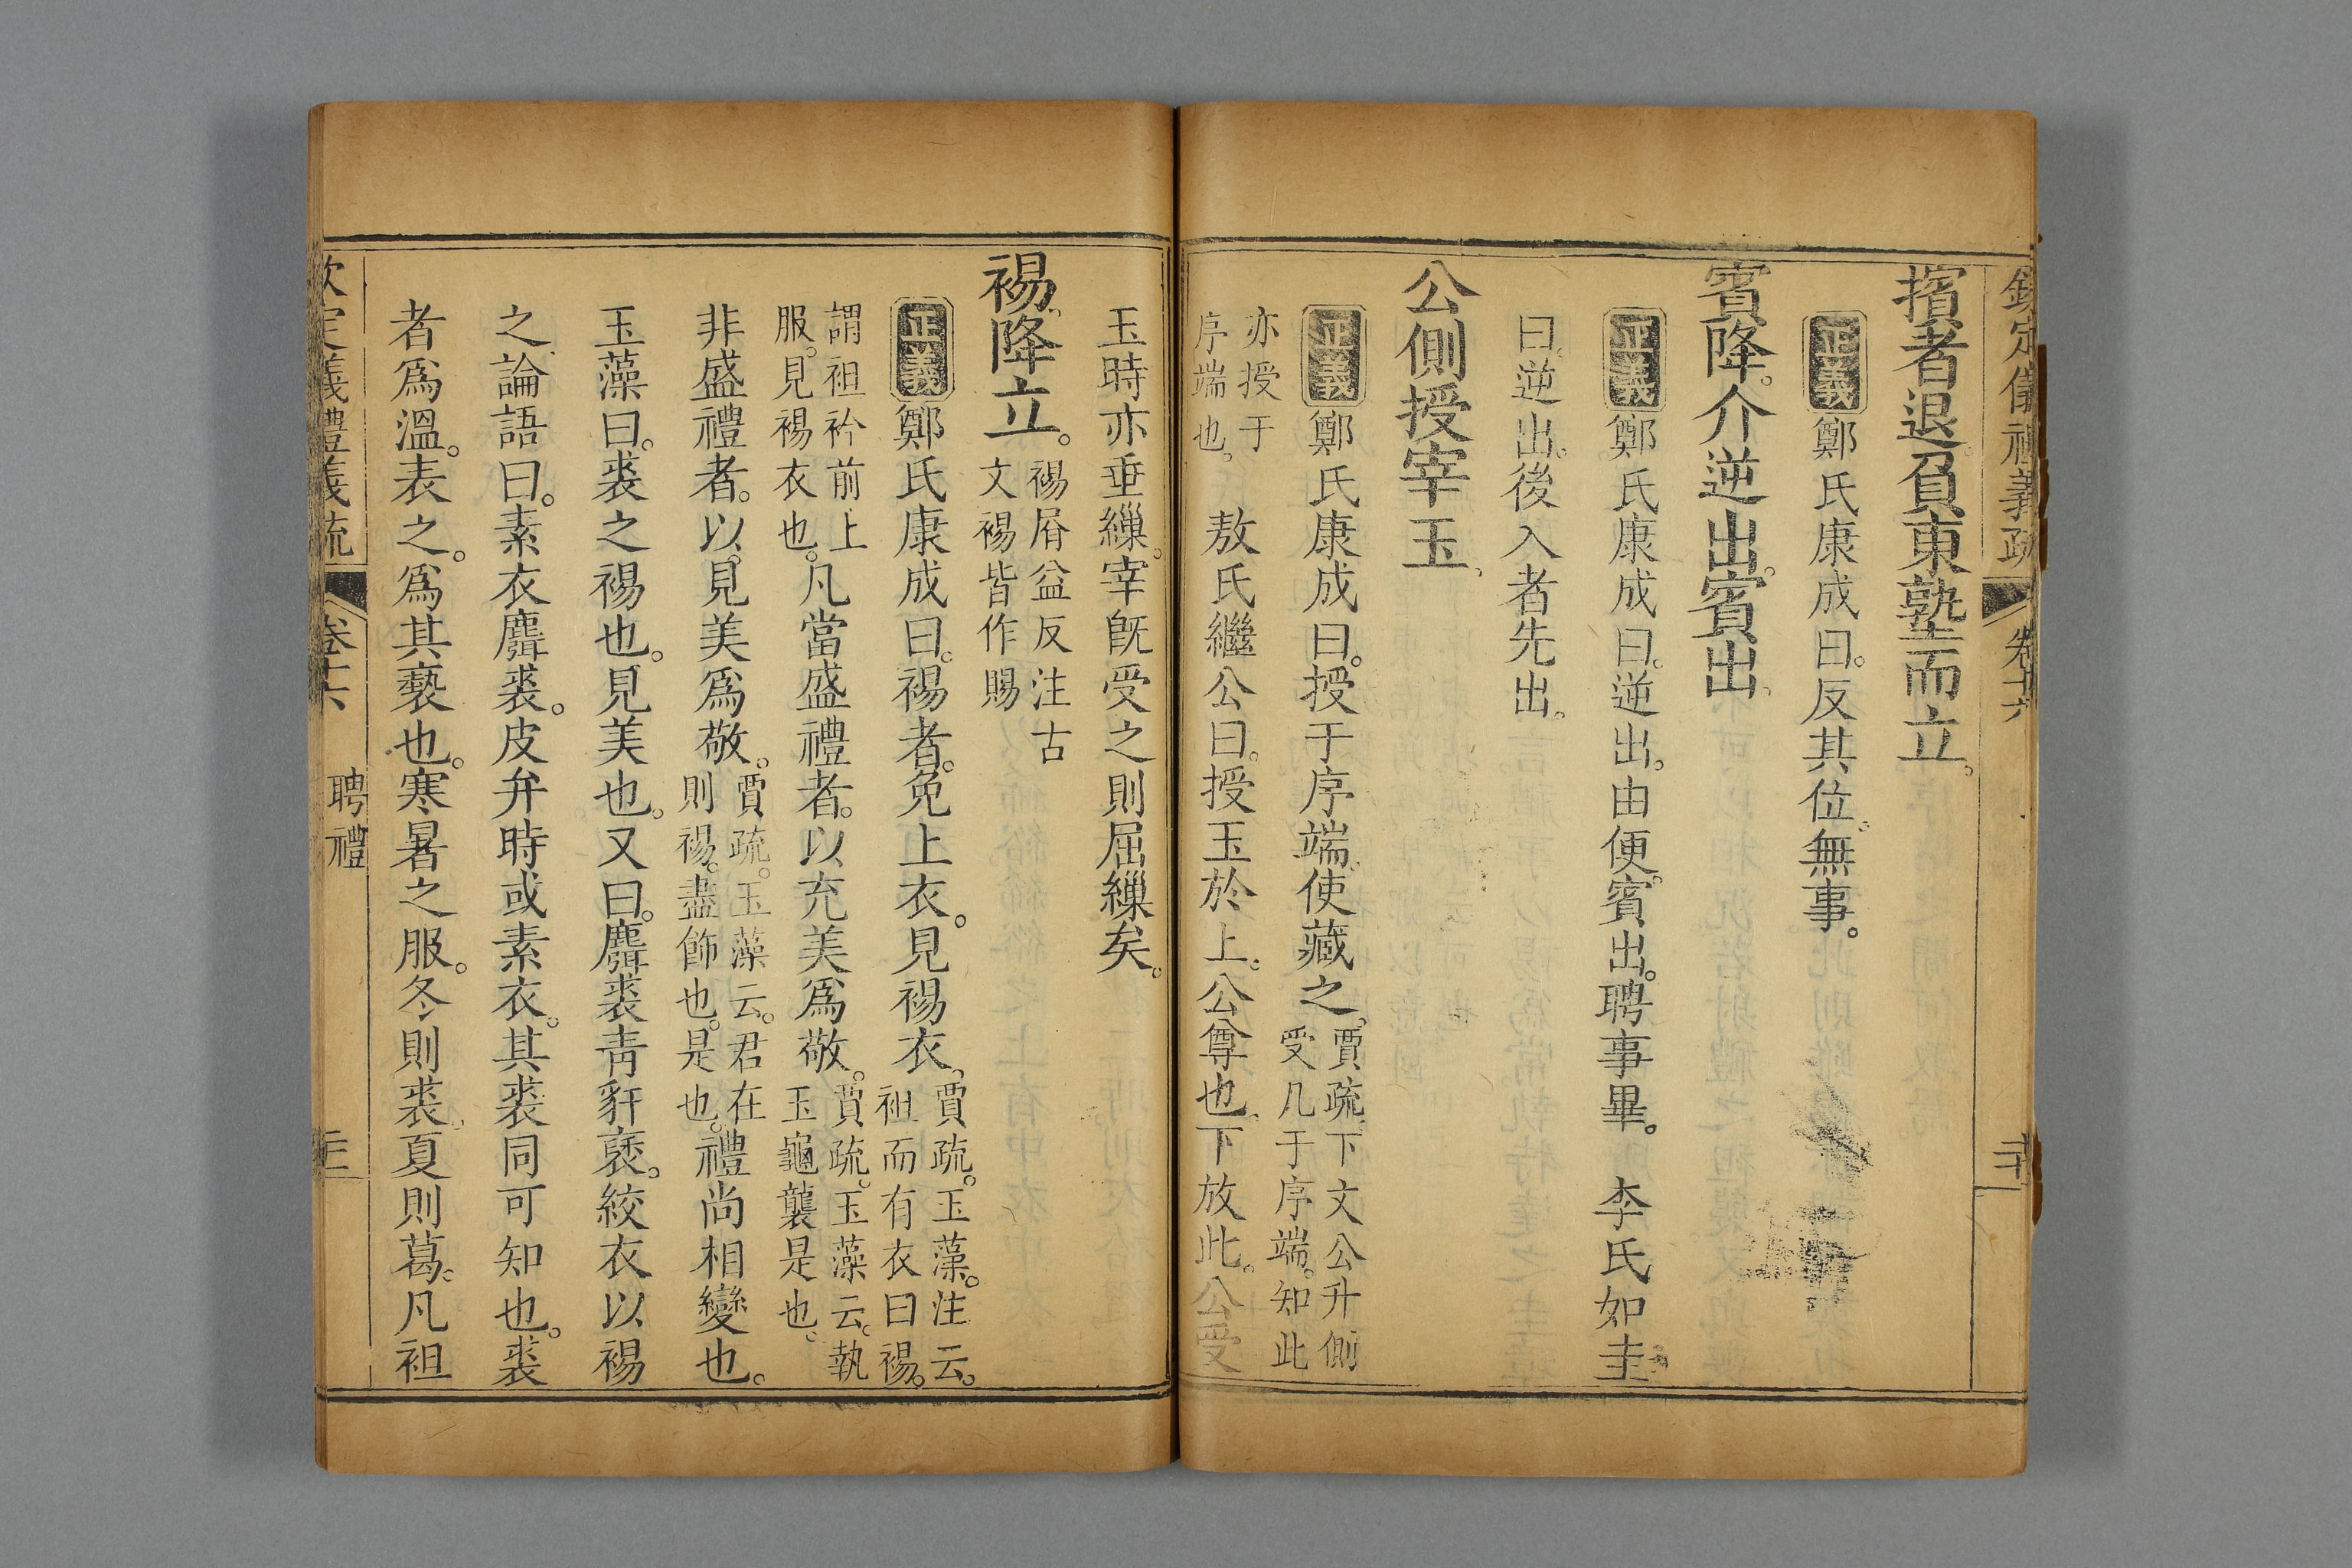 欽定儀禮義疏 卷十六 二十
擯者退。負東塾而立。
正義 鄭氏康成曰。反其位。無事。
賓降。介逆出。賓出。
正義 鄭氏康成曰。逆出。由便。賓出。聘事畢。 李氏如圭
曰。逆出。後入者先出。
公側授宰玉。
正義 鄭氏康成曰。授于序端。使藏之。賈疏。下文公升側
受几于序端。知此
亦授于
序端也。 敖氏繼公曰。授玉於上。公尊也。下放此。公受
玉時亦垂繅。宰旣受之則屈繅矣。
裼降立。裼屑益反注古
文裼皆作賜
正義 鄭氏康成曰。裼者。免上衣。見裼衣。賈疏。玉藻。注云。
袒而有衣曰裼。
謂袒衿前上
服。見裼衣也。凡當盛禮者。以充美爲敬。賈疏。玉藻云。執
玉龜襲是也。
非盛禮者。以見美爲敬。賈疏。玉藻云。君在
則裼。盡飾也。是也。禮尚相變也。
玉藻曰。裘之裼也。見美也。又曰。麛裘靑豻褎。絞衣以裼
之。論語曰。素衣麑裘。皮弁時或素衣。其裘同可知也。裘
者爲溫。表之。爲其褻也。寒暑之服。冬則裘。夏則葛。凡袒
欽定儀禮義疏 卷十六 聘禮